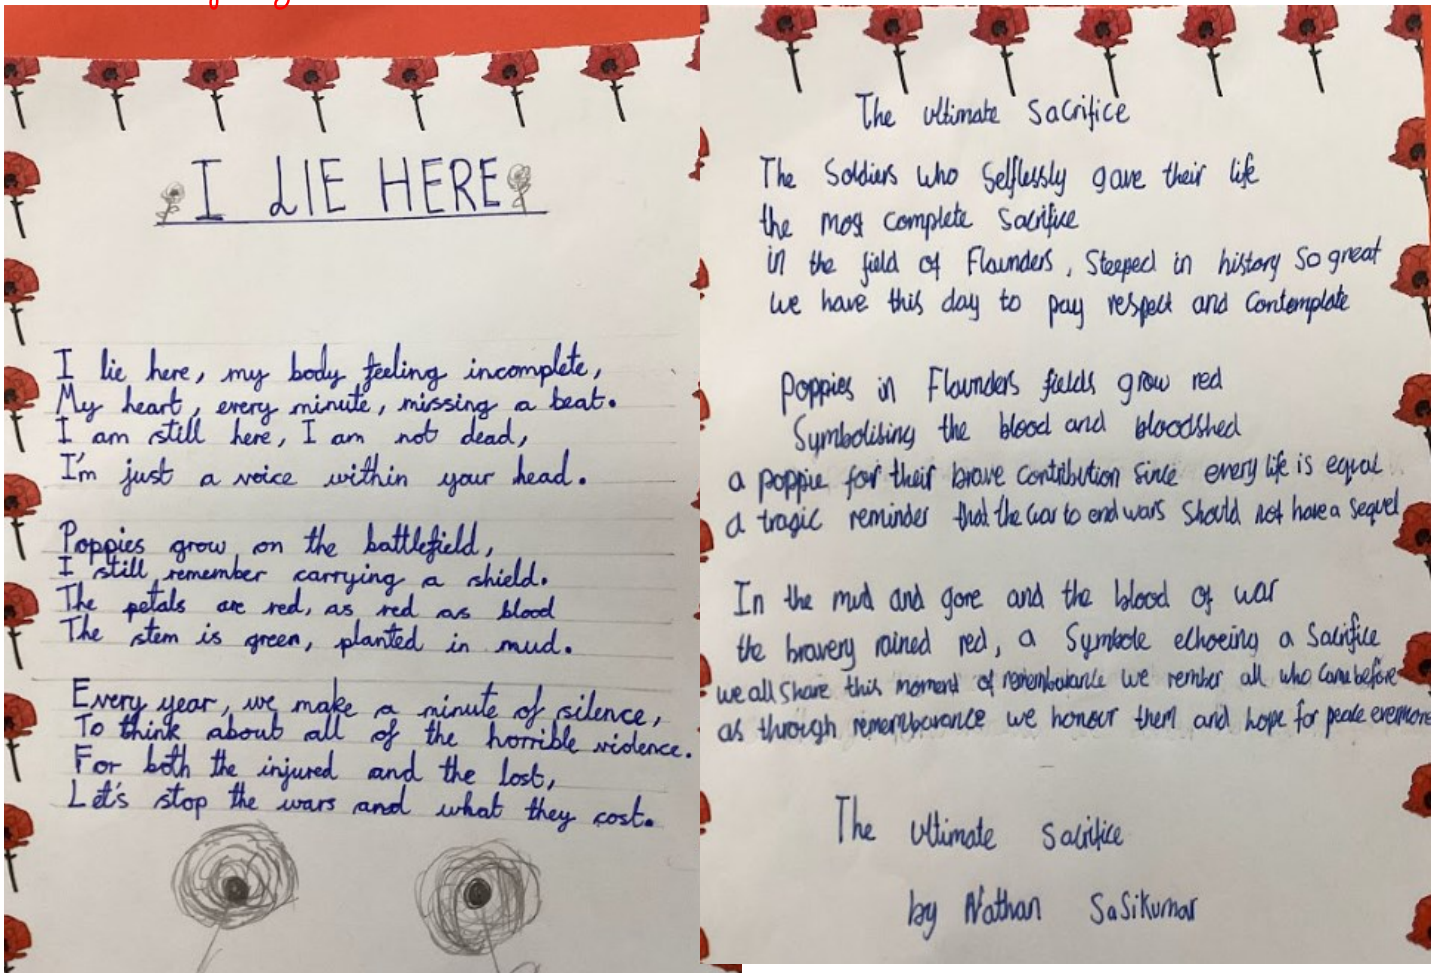 I LIE HERE
I lie here, my body feeling incomplete,
My heart, every minute, missing a beat.
I am still here, I am not dead,
I'm just a voice within your head.
Poppies grow on the battlefield,
I still remember carrying a shield.
The petals are red, as red as blood
The stem is green, planted in mud.
Every year, we make a minute of silence,
To think about all of the horrible violence.
For both the injured and the lost,
Let's stop the wars and what they cost.
The Ultimate Sacrifice
The Soldiers who Selflessly gave their life
the most complete Sacrifice
in the field of Flaunders, Steeped in history So great
we have this day to pay respect and Contemplate
Poppies in Flaunders fields grow red
Symbolising the blood and bloodshed
a poppie for their brave contribution Since every life is equal
a tragic reminder that the war to end wars Should not have a Sequel
In the mud and gore and the blood of war
the bravery rained red, a Symbole echoeing a Sacrifice
we all Share this moment of we rember all who Came before
as through we honour them and hope for peace evermore
The Ultimate Sacrifice
by Nathan SaSikumar